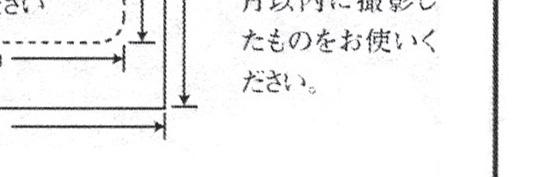 ださい
月以内に撮影し
たものをお使いく
ださい。